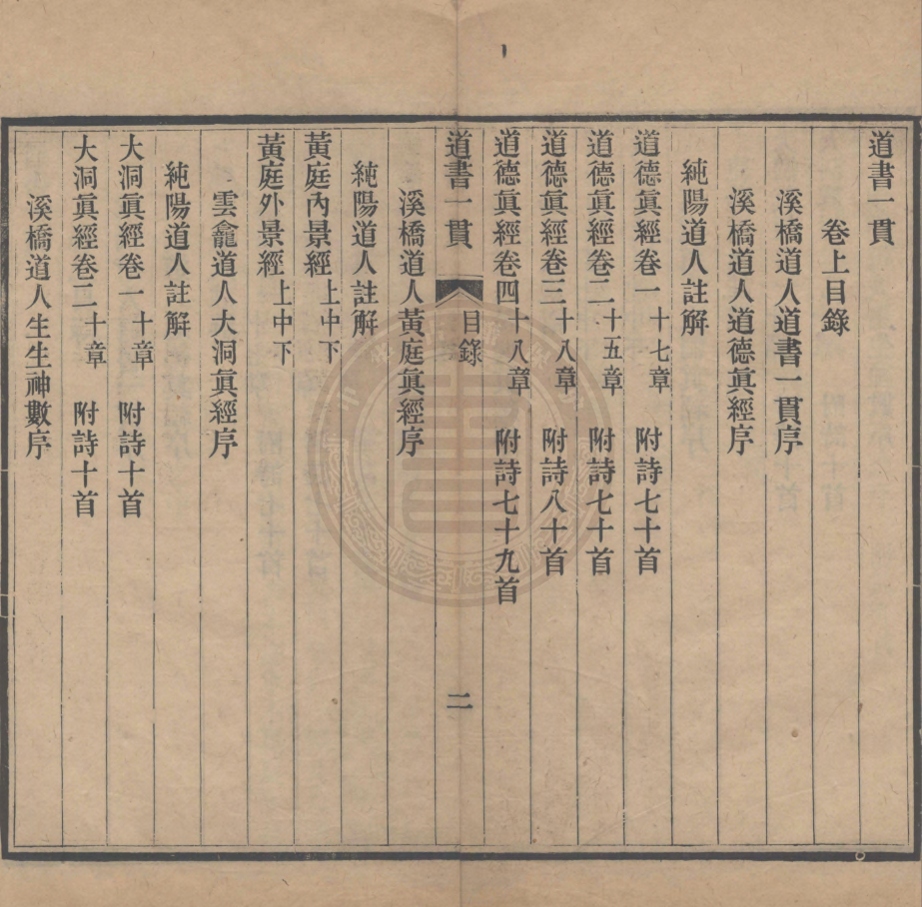 道書一貫
卷上目錄
溪橋道人道書一貫序
溪橋道人道德眞經序
純陽道人註解
道德眞經卷一 十七章 附詩七十首
道德眞經卷二 十五章 附詩七十首
道德眞經卷三 十八章 附詩八十首
道德眞經卷四 十八章 附詩七十九首
道書一貫 目錄 二
溪橋道人黃庭眞經序
純陽道人註解
黃庭內景經 上中下
黃庭外景經 上中下
雲龕道人大洞眞經序
純陽道人註解
大洞眞經卷一 十章 附詩十首
大洞眞經卷二 十章 附詩十首
溪橋道人生生神數序